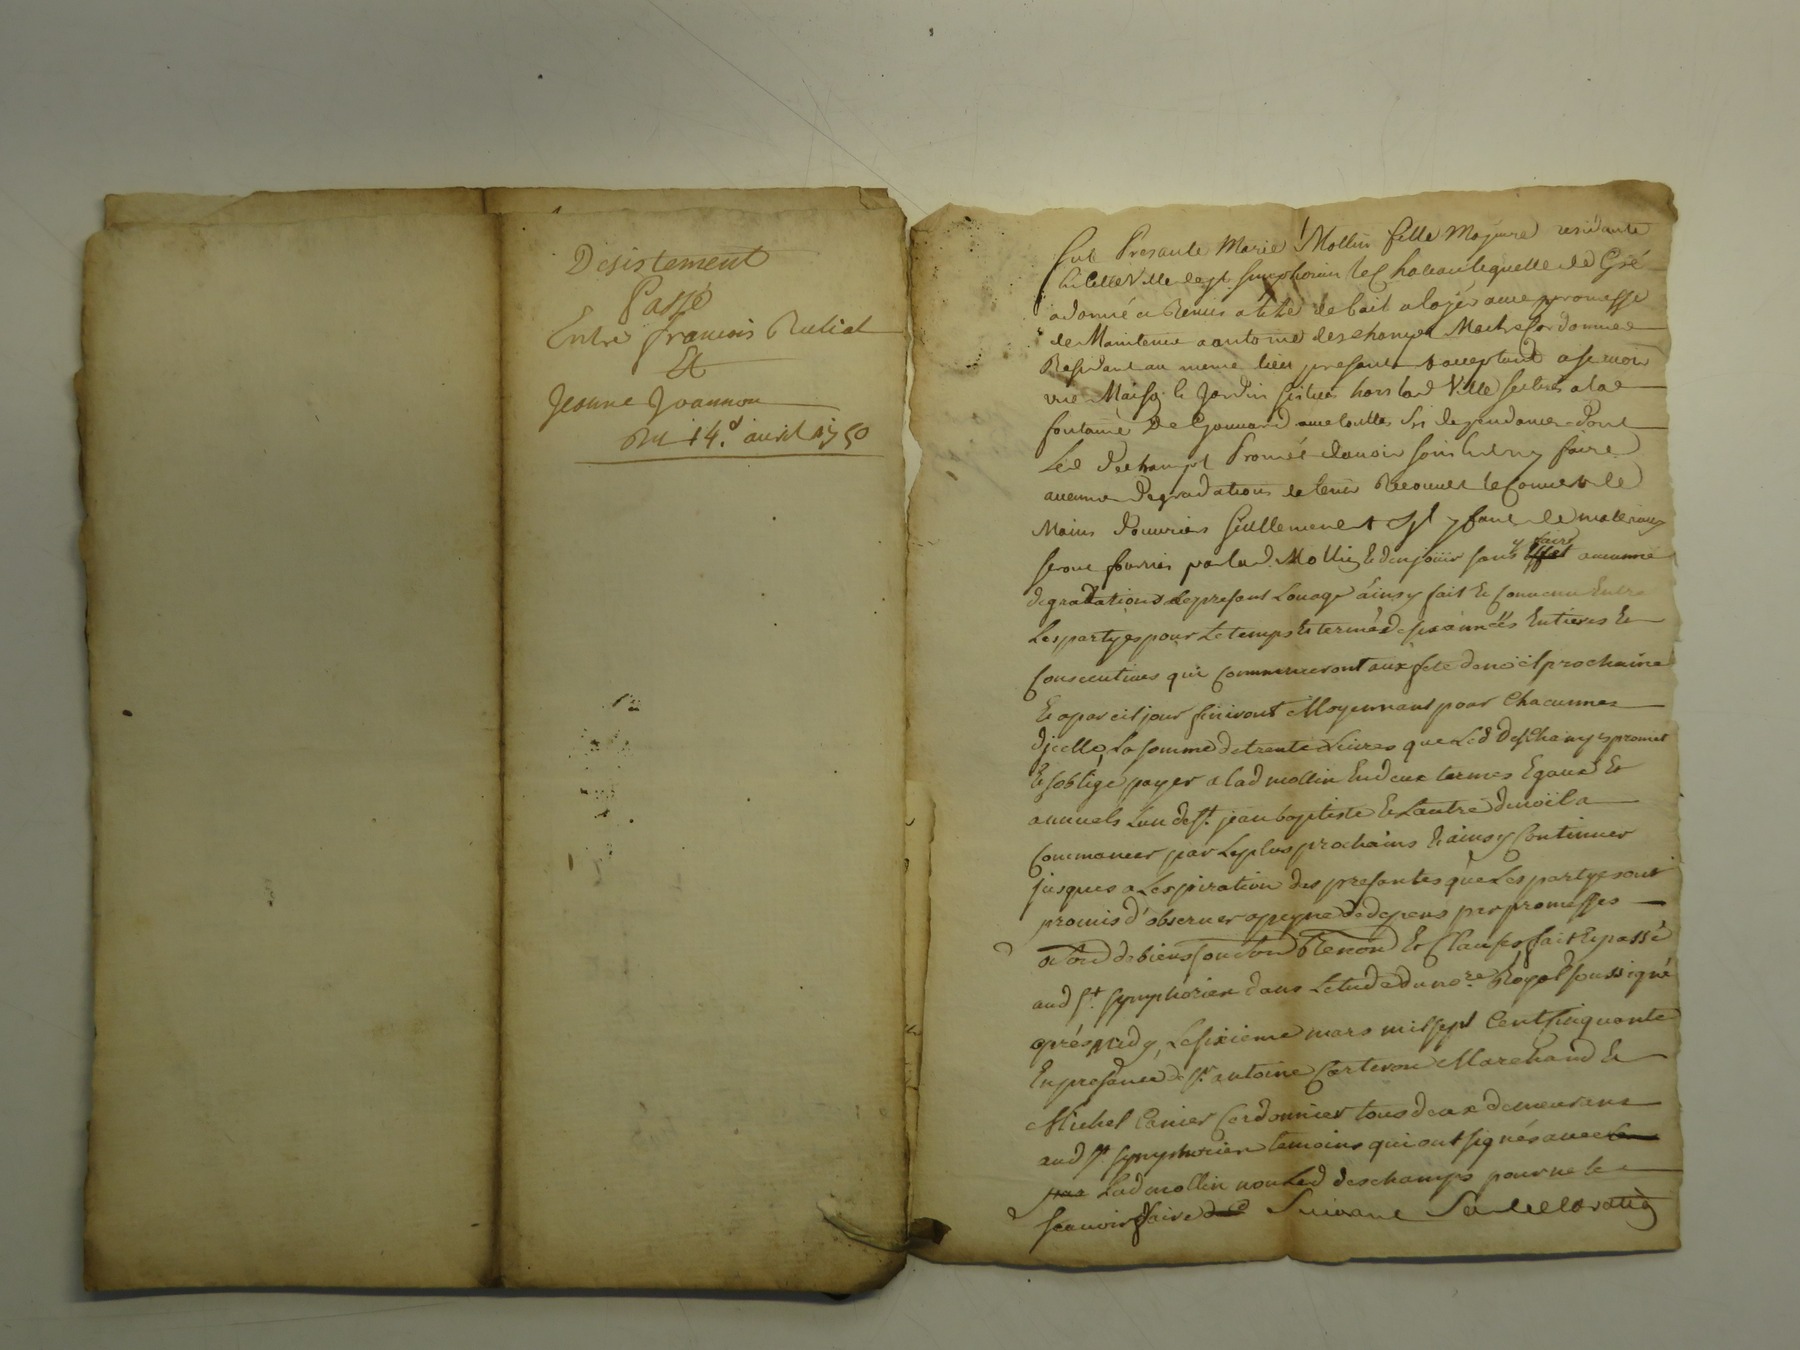 Desistement
Passé
Entre françois Rulial
Et
Jeanne Joannon
Du 14.e avril 1750
fut Presante Marie Mollin fille Majeure residante
En Cette Ville de st simphorien le Chateau lequelle de Gré
a donné a Remis a titre de bail a loyer avec promesse
de Maintenir a antoine deschamps Maitre Cordonnier
Residant au meme lieu present & acceptant a scavoir
une Maison & Jardin situés hors lad Ville
fontaine De avec touttes Ses dependances Dont
Led deschamps Promét d'avoir soin ny faire
aucune Degradations de tenir le Couvert de
Mains d'ouvriers seullement sy faut de materiaux
seront fournis par lad. Mollin & d'en jouir sans y faire aucunne
degradations le present Louage ainsy fait & convenu Entre
Les partyes pour Le temps & terme de six années Entieres &
Consecutives qui Commenceront aux fete de noël prochaine
& a pareil jour finiront Moyennant pour Chacunnes
d'icelle, La somme de trente Livres que Led deschamps promet
& s'oblige payer a lad mollin En deux termes Egaux &
annuels L'un de st jean baptiste & L'autre de noël a
Commancer par Les plus prochains & ainsy Continuer
jusques a L'expiration des presantes que Les partyes ont
promis d'observer a peyne de depens par promesses
de biens Renon & Clauses fait & passé
aud st. symphorien dans L'etude du no.re Royal soussigné
aprés midy, Le sixieme mars mil sept Cent Cinquante
En presence de sr. antoine Carteron Marchand &
Michel Cordonnier tous deux demeurant
aud st symphorien temoins qui ont signés avec
Lad mollin non Led deschamps pour ne le
scavoir faire de Suivant